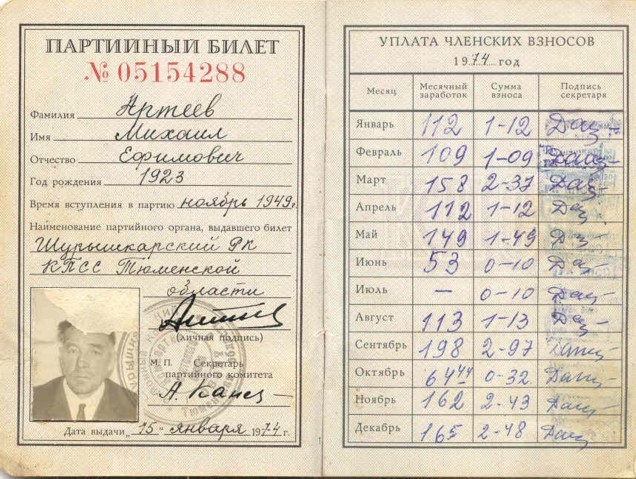 ПАРТИЙНЫЙ БИЛЕТ
№ 05154288
Фамилия Артеев
Имя Михаил
Отчество Ефимович
Год рождения 1923
Время вступления в партию ноябрь 1949г.
Наименование партийного органа, выдавшего билет
Шурышкарский РК
КПСС Тюменской
области
(личная подпись)
М. П. Секретарь
партийного комитета
Дата выдачи „15" января 1974 г.
УПЛАТА ЧЛЕНСКИХ ВЗНОСОВ
1974 год
Месяц Месячный заработок Сумма взноса Подпись секретаря
Январь 112 1-12
Февраль 109 1-09
Март 158 2-37
Апрель 112 1-12
Май 149 1-49
Июнь 53 0-10
Июль — 0-10
Август 113 1-13
Сентябрь 198 2-97
Октябрь 64 44 0-32
Ноябрь 162 2-43
Декабрь 165 2-48